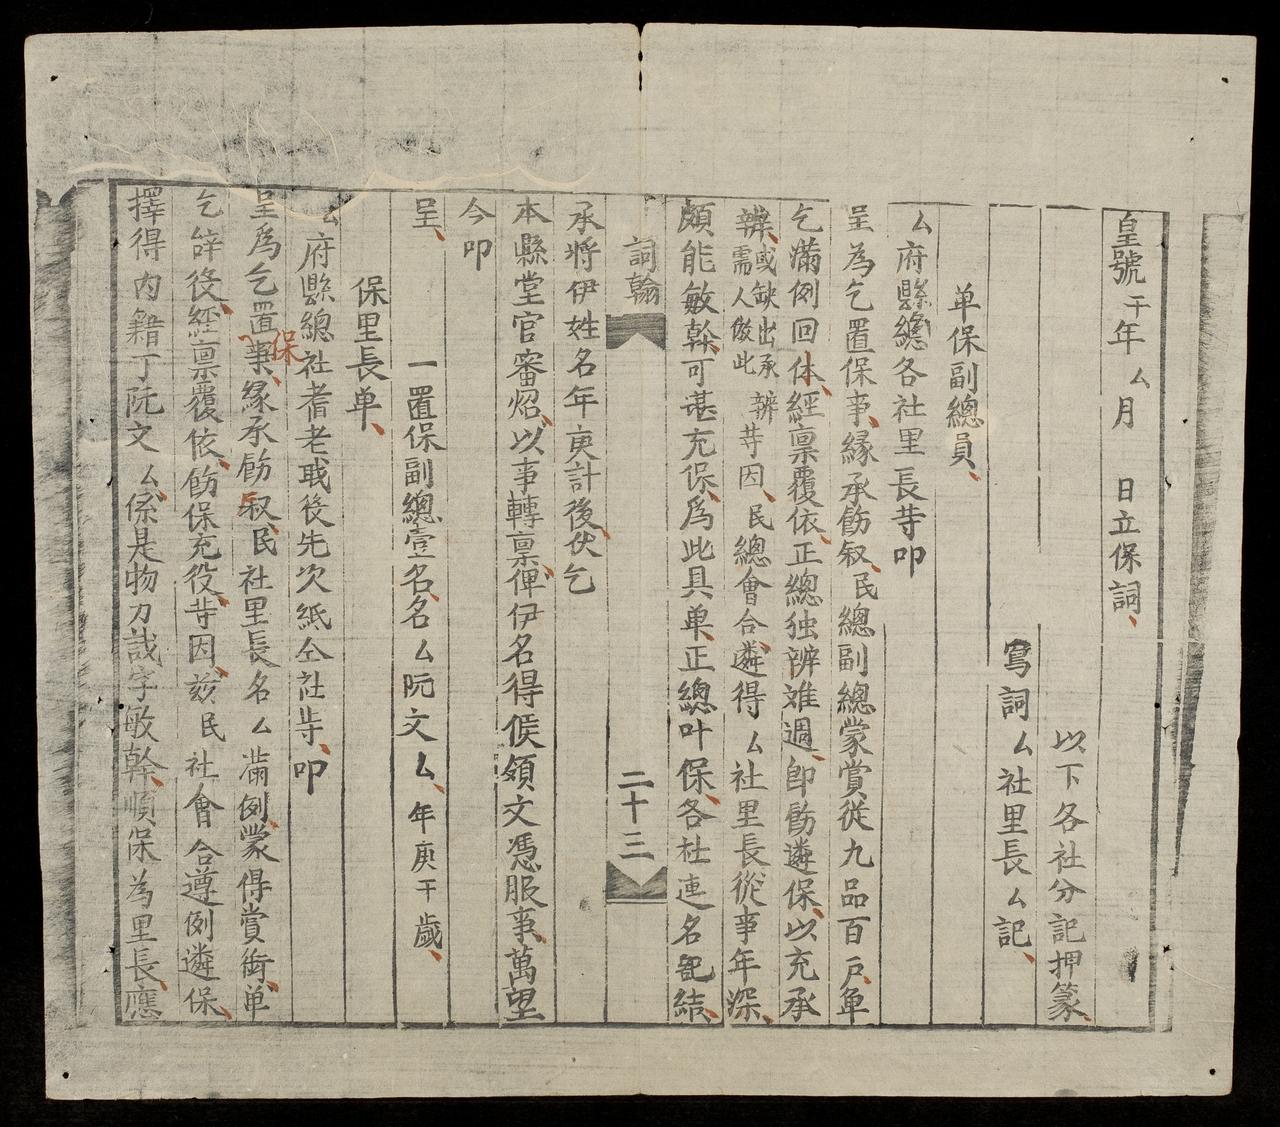 皇號干年厶月 日立保詞
以下各社分記押篆
寫詞厶社里長厶記
单保副總員
厶府縣總各社里長䓁叩
呈為乞置保事緣承飭叙民總副總蒙賞從九品百户单
乞滿例回体經禀覆依正總独辨难週卽飭遴保以充承
辨或缺出承辨需人倣此䓁因民總會合遴得厶社里長從事年深
頗能敏幹可谌充保爲此具单正總叶保各社連名記結
詞翰 二十三
承將伊姓名年庚計後伏乞
本縣堂官審炤以事轉禀俾伊名得俟領文憑服事萬望
今叩
呈
一置保副總壹名名厶阮文厶年庚干歲
保里長单
厶府縣總社耆老戝役先次紙仝社䓁叩
呈爲乞置保事緣承飭叙民社里長名厶滿例蒙得賞銜单
乞辝役經禀覆依飭保充役䓁因兹民社會合遵例遴保
擇得内籍丁阮文厶係是物力識字敏幹順保為里長應